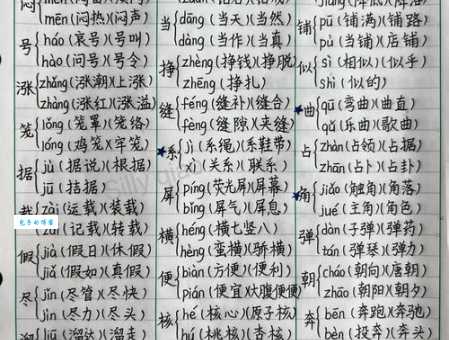 闷 mēn (闷热)(闷声)
号 háo (哀号)(号叫)
hào (问号)(号令)
涨 zhǎng (涨潮)(上涨)
zhàng (涨红)(涨溢)
笼 lǒng (笼罩)(笼络)
lóng (鸡笼)(牢笼)
据 jù (据说)(根据)
jū (拮据)
载 zài (运载)(装载)
zǎi (记载)(转载)
假 jià (假日)(休假)
jiǎ (假如)(真假)
尽 jǐn (尽管)(尽快)
jìn (尽力)(尽头)
溜 liū (溜达)(溜走)
当 dāng (当天)(当然)
dàng (当作)(当真)
挣 zhèng (挣钱)(挣脱)
zhēng (挣扎)
缝 féng (缝补)(缝合)
fèng (缝隙)(夹缝)
系 jì (系绳)(系鞋带)
xì (关系)(联系)
屏 píng (荧光屏)(屏幕)
bǐng (屏气)(屏息)
横 héng (横七竖八)
hèng (蛮横)(骄横)
便 biàn (方便)(便利)
pián (便宜)(大腹便便)
核 hé (核心)(原子核)
hú (桃核)(杏核)
铺 pū (铺满)(铺路)
pù (当铺)(店铺)
似 sì (相似)(似乎)
shì (似的)
曲 qū (弯曲)(曲直)
qǔ (乐曲)(歌曲)
占 zhàn (占领)(占据)
zhān (占卜)(占卦)
角 jiǎo (触角)(角落)
jué (主角)(角色)
弹 dàn (子弹)(弹药)
tán (弹琴)(弹力)
朝 cháo (朝向)(唐朝)
zhāo (朝阳)(朝夕)
奔 bēn (奔跑)(奔驰)
bèn (投奔)(奔头)